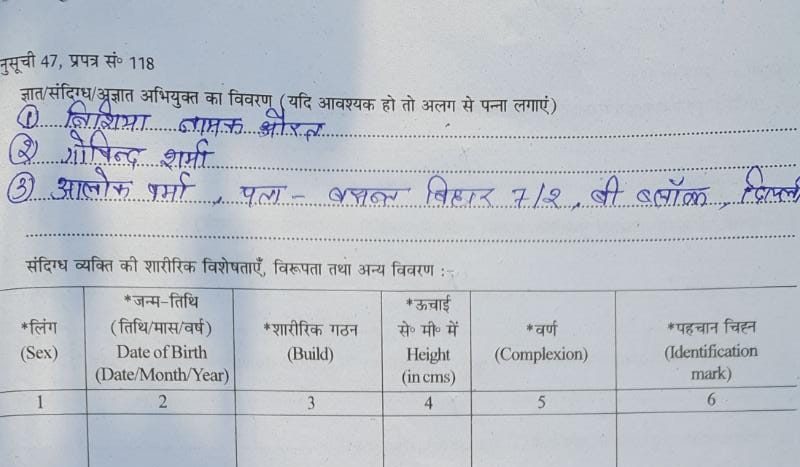 नुसूची 47, प्रपत्र सं० 118
ज्ञात/संदिग्ध/अज्ञात अभियुक्त का विवरण (यदि आवश्यक हो तो अलग से पन्ना लगाएं)
① नामक औरत
② गोविन्द शर्मा
③ आलोक वर्मा, पता - बसन्त बिहार 7/2, बी ब्लॉक,
संदिग्ध व्यक्ति की शारीरिक विशेषताएँ, विरूपता तथा अन्य विवरण :-
*लिंग
(Sex)
*जन्म-तिथि
(तिथि/मास/वर्ष)
Date of Birth
(Date/Month/Year)
*शारीरिक गठन
(Build)
*ऊचाई
से० मी० में
Height
(in cms)
*वर्ण
(Complexion)
*पहचान चिह्न
(Identification
mark)
1 2 3 4 5 6